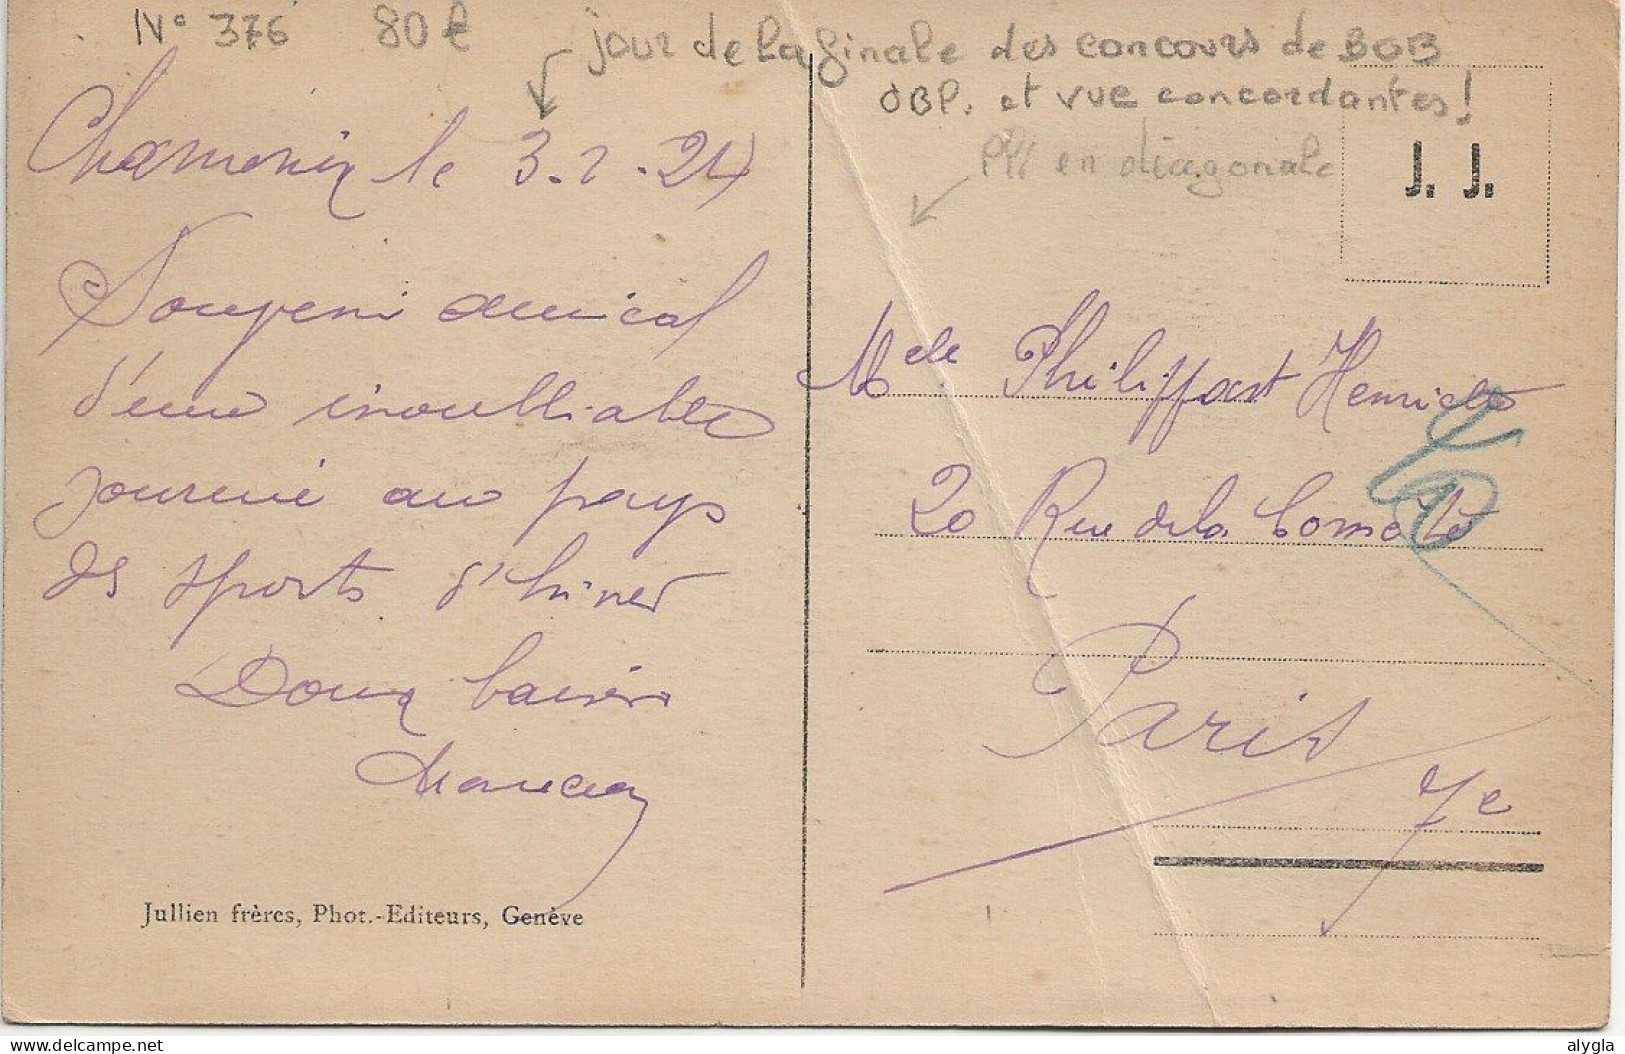 N° 376 80 €
jour de la finale des concours de BOB
OBL. et vue concordantes !
Pli en diagonale
J. J.
Chamonix le 3.2.24
Souvenir amical
d'une inoubliable
journée au pays
des sports d'hiver
Doux baisers
Melle Philippart Henriette
20 Rue de la Comète
Paris
7e
Jullien frères, Phot.-Editeurs, Genève
alygla